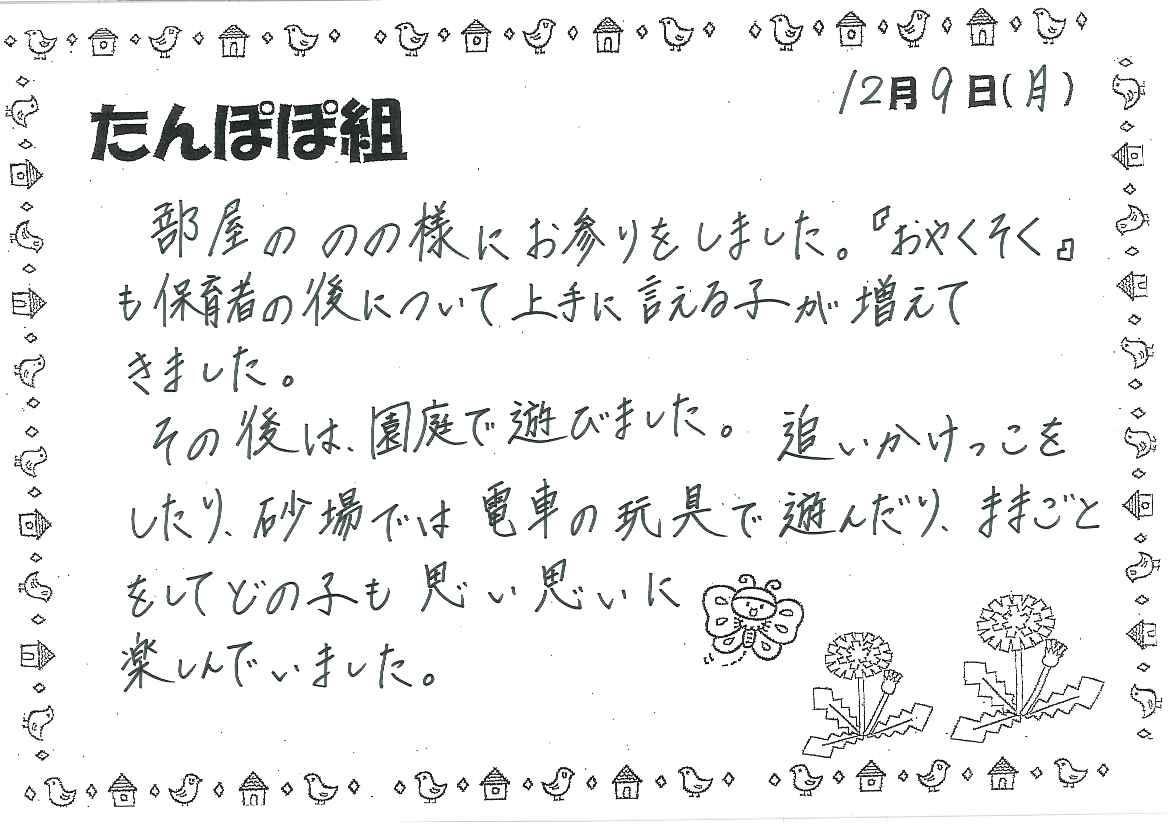 12月9日(月)
たんぽぽ組
部屋ののの様にお参りをしました。『おやくそく』
も保育者の後について上手に言える子が増えて
きました。
その後は、園庭で遊びました。追いかけっこを
したり、砂場では電車の玩具で遊んだり、ままごと
をしてどの子も思い思いに
楽しんでいました。